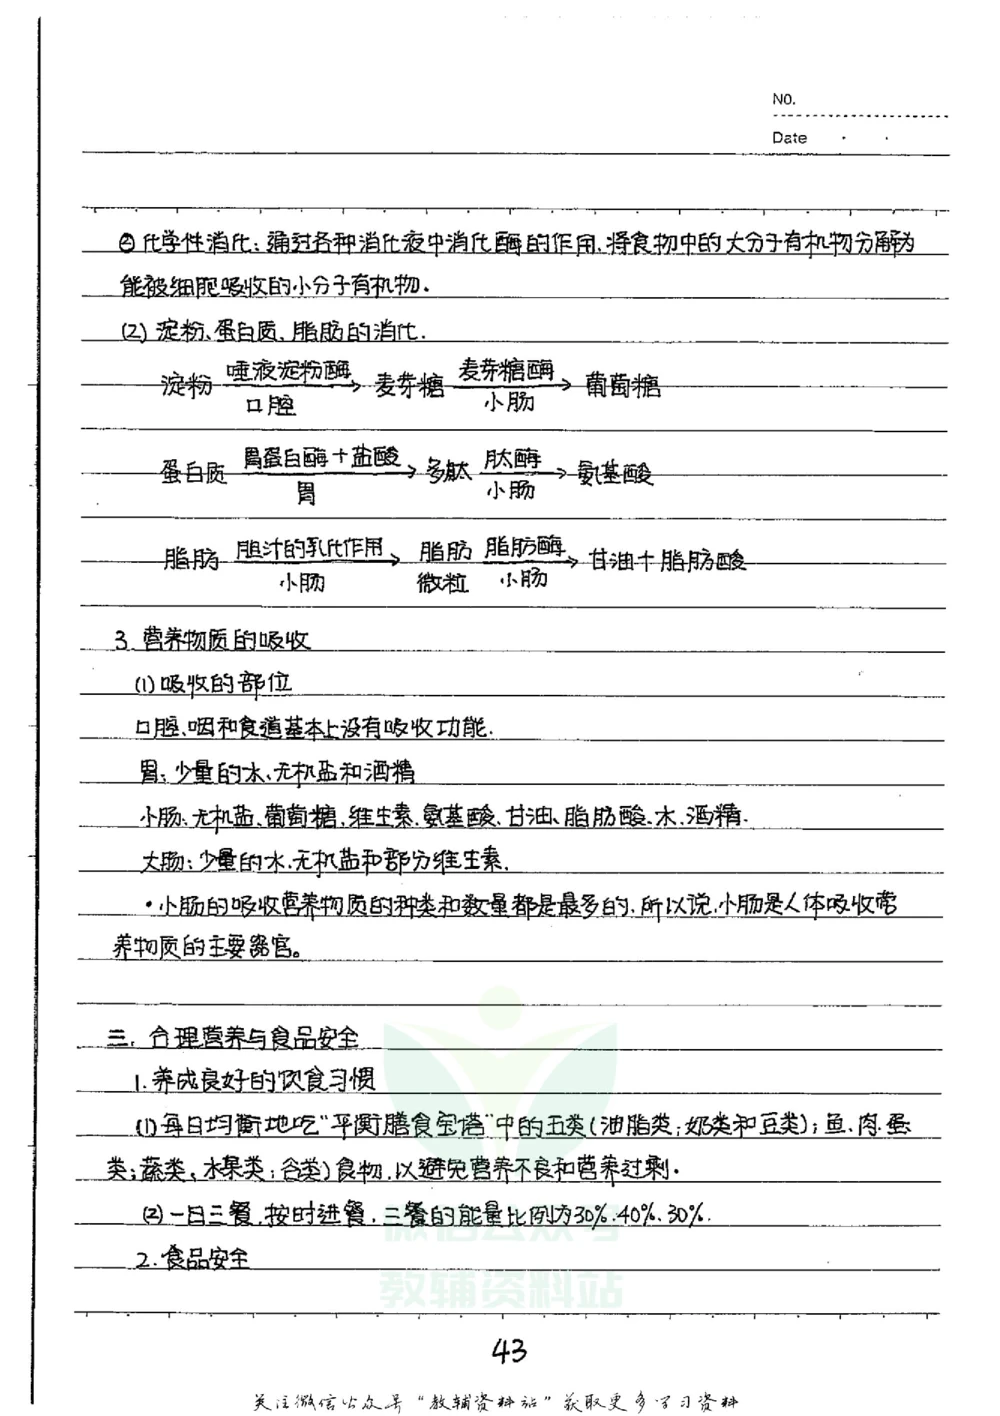 NO.
Date
②化学性消化：通过各种消化液中消化酶的作用，将食物中的大分子有机物分解为
能被细胞吸收的小分子有机物.
(2) 淀粉、蛋白质、脂肪的消化.
唾液淀粉酶 麦芽糖酶
淀粉 → 麦芽糖 → 葡萄糖
口腔 小肠
胃蛋白酶+盐酸 肽酶
蛋白质 → 多肽 → 氨基酸
胃 小肠
胆汁的乳化作用 脂肪酶
脂肪 → 脂肪 → 甘油+脂肪酸
小肠 微粒 小肠
3.营养物质的吸收
(1)吸收的部位
口腔、咽和食道基本上没有吸收功能.
胃：少量的水、无机盐和酒精
小肠：无机盐、葡萄糖、维生素、氨基酸、甘油、脂肪酸、水、酒精.
大肠：少量的水、无机盐和部分维生素.
·小肠的吸收营养物质的种类和数量都是最多的，所以说，小肠是人体吸收营
养物质的主要器官。
三. 合理营养与食品安全
1.养成良好的饮食习惯
(1)每日均衡地吃"平衡膳食宝塔"中的五类(油脂类；奶类和豆类)；鱼、肉、蛋
类；蔬类、水果类；谷类)食物，以避免营养不良和营养过剩.
(2)一日三餐，按时进餐，三餐的能量比例为30%、40%、30%.
2.食品安全
微信公众号
教辅资料站
43
关注微信公众号"教辅资料站"获取更多学习资料